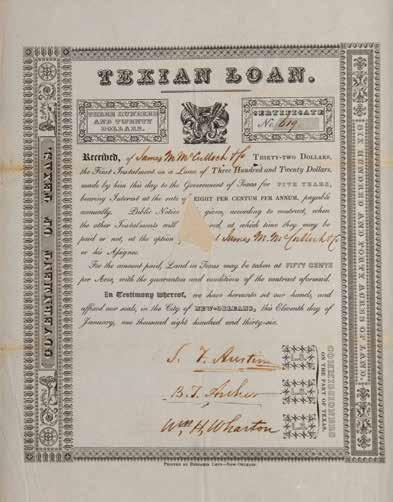 TEXIAN LOAN.
THREE HUNDRED
AND TWENTY
DOLLARS.
CERTIFICATE
No. 619
GOVERNMENT OF TEXAS.
Received, of James M. McCulloch THIRTY-TWO DOLLARS,
the First Instalment on a Loan of Three Hundred and Twenty Dollars,
made by him this day to the Government of Texas for FIVE YEARS,
bearing Interest at the rate of EIGHT PER CENTUM PER ANNUM, payable
annually. Public Notice given, according to contract, when
the other Instalments will , at which time they may be
paid or not, at the option James M. McCulloch
or his Assignee.
For the amount paid, Land in Texas may be taken at FIFTY CENTS
per Acre, with the guarantees and conditions of the contract aforesaid.
In Testimony whereof, we have hereunto set our hands, and
affixed our seals, in the City of NEW-ORLEANS, this Eleventh day of
January, one thousand eight hundred and thirty-six.
S. F. Austin
B. T. Archer
Wm. H. Wharton
L.S.
L.S.
L.S.
COMMISSIONERS
ON THE PART OF TEXAS.
SIX HUNDRED AND FORTY ACRES OF LAND.
PRINTED BY BENJAMIN LEVY—NEW ORLEANS.